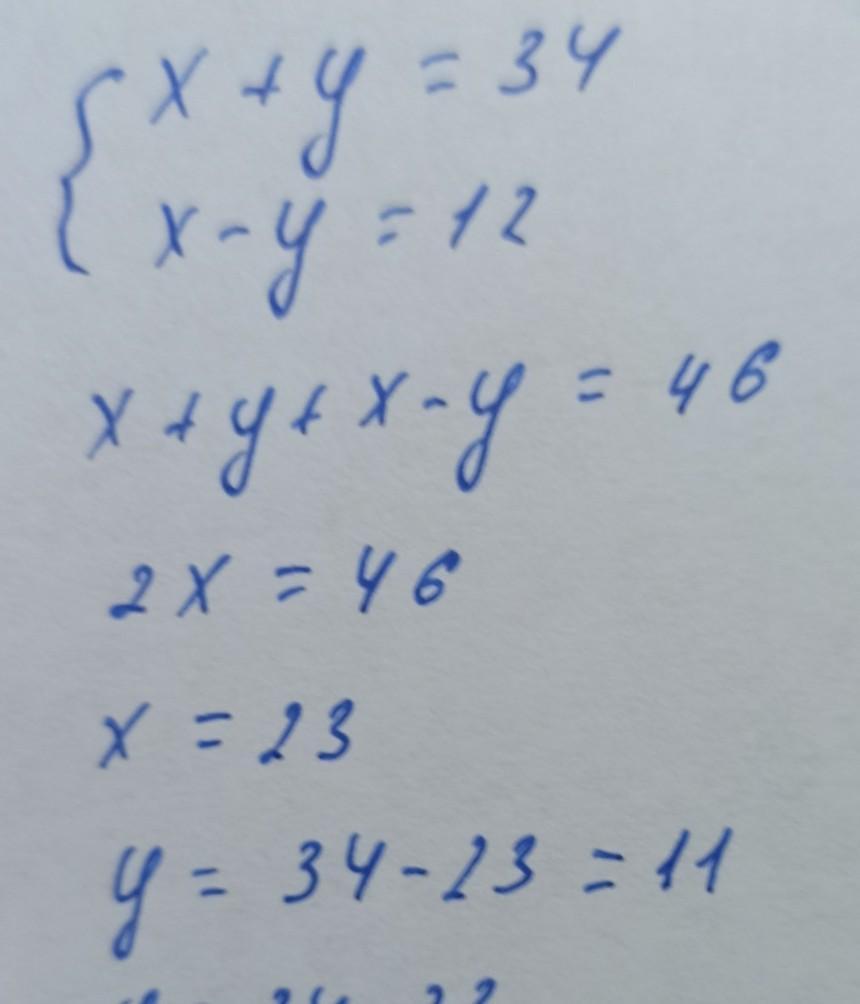 x + y = 34
x - y = 12
x + y + x - y = 46
2x = 46
x = 23
y = 34 - 23 = 11